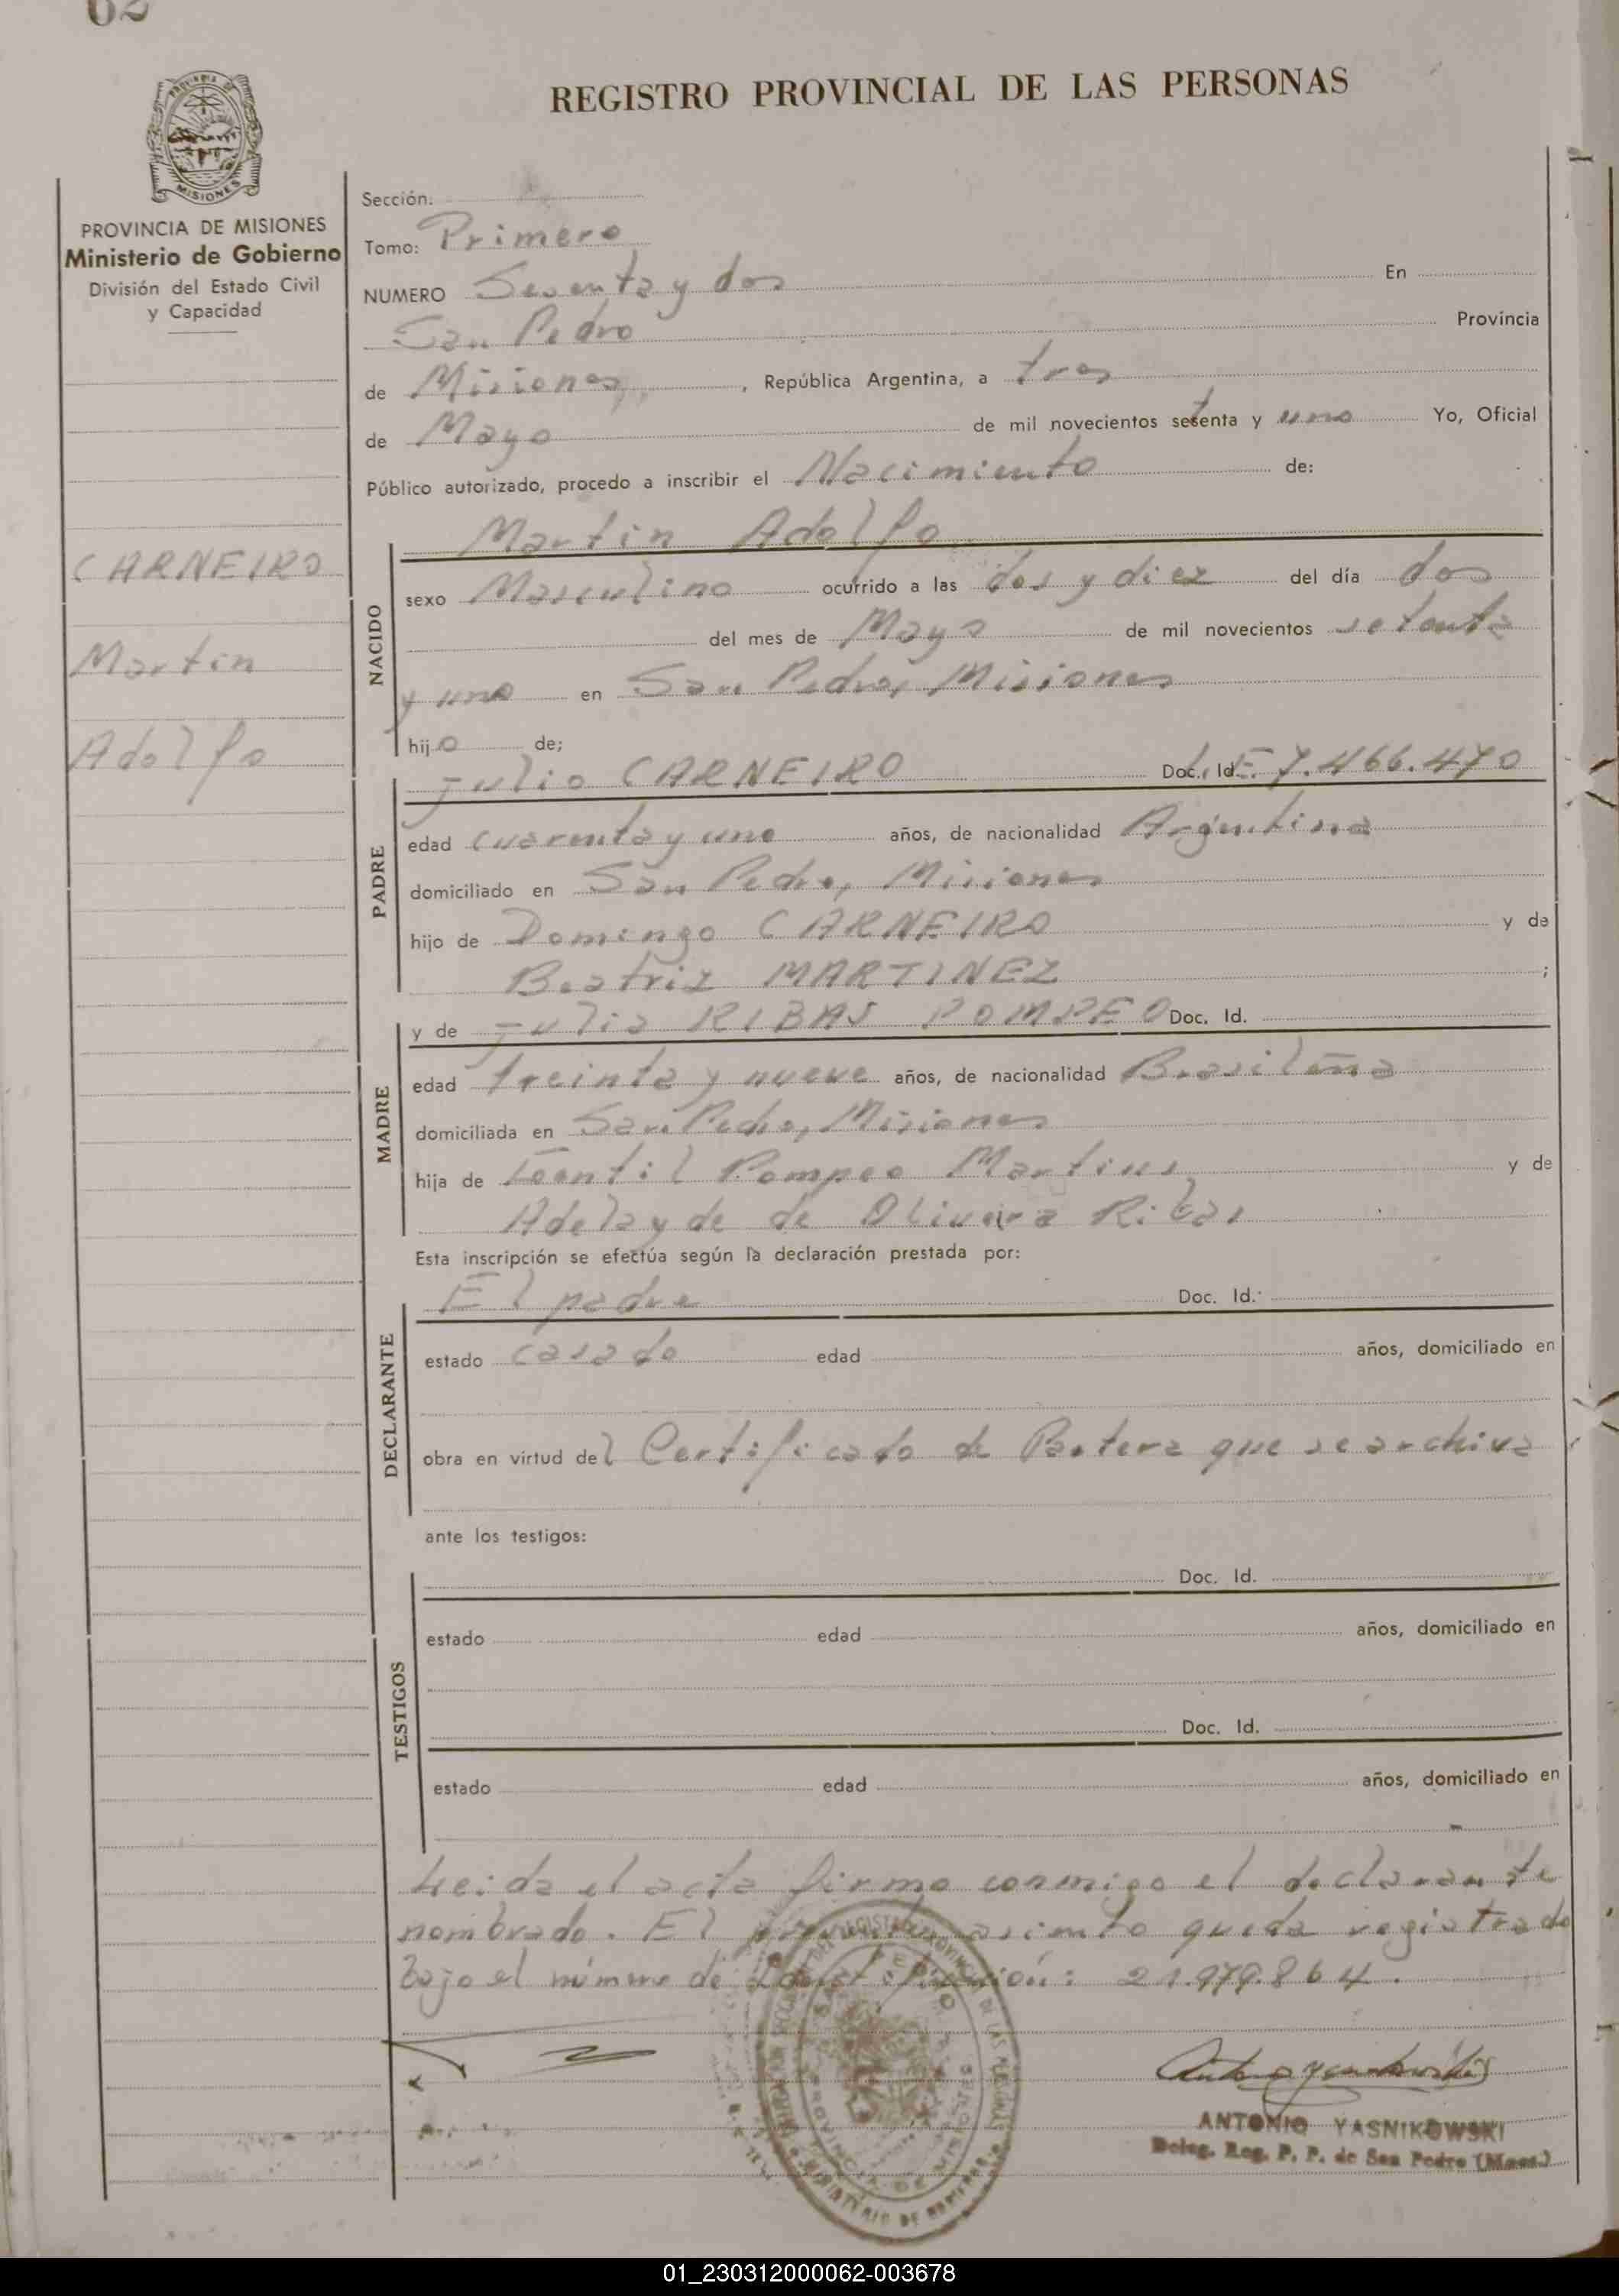 62
REGISTRO PROVINCIAL DE LAS PERSONAS
PROVINCIA DE
MISIONES
PROVINCIA DE MISIONES
Ministerio de Gobierno
División del Estado Civil
y Capacidad
CARNEIRO
Martin
Adolfo
Sección:
Tomo: Primero
NUMERO Sesenta y dos En
San Pedro Provincia
de Misiones, República Argentina, a tres
de Mayo de mil novecientos setenta y uno Yo, Oficial
Público autorizado, procedo a inscribir el Nacimiento de:
Martin Adolfo
NACIDO
sexo Masculino ocurrido a las dos y diez del día dos
del mes de Mayo de mil novecientos setenta
y uno en San Pedro, Misiones
hijo de;
Julio CARNEIRO Doc. Id. L.E. 7.466.470
PADRE
edad cuarenta y uno años, de nacionalidad Argentina
domiciliado en San Pedro, Misiones
hijo de Domingo CARNEIRO y de
Beatriz MARTINEZ ;
y de Julia RIBAS POMPEO Doc. Id.
MADRE
edad treinta y nueve años, de nacionalidad Brasileña
domiciliada en San Pedro, Misiones
hija de Gentil Pompeo Martins y de
Adelayde de Oliveira Ribas
Esta inscripción se efectúa según la declaración prestada por:
El padre Doc. Id.
DECLARANTE
estado casado edad años, domiciliado en
obra en virtud del Certificado de Partera que se archiva
ante los testigos:
Doc. Id.
TESTIGOS
estado edad años, domiciliado en
Doc. Id.
estado edad años, domiciliado en
Leida el acta firma conmigo el declarante
nombrado. El queda registrado
bajo el número de 21.979.864.
ANTONIO YASNIKOWSKI
Deleg. Reg. P. P. de San Pedro (Mnes.)
01_230312000062-003678